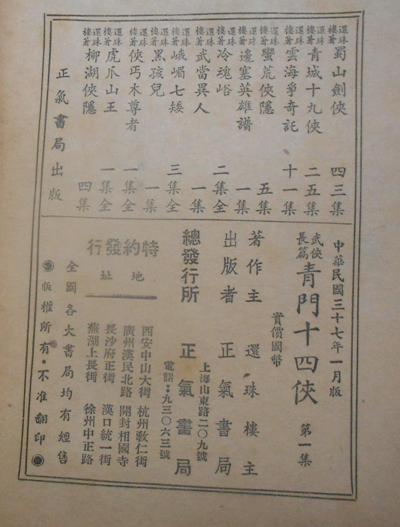 中華民國三十七年一月版
武俠長篇 青門十四俠 第一集
實價國幣
著作主 還珠樓主
出版者 正氣書局
上海山東路二〇九號
總發行所 正氣書局
電話：九三〇六三號
特約發行
地址
西安中山大街 杭州敎仁街
廣州漢民北路 開封相國寺
長沙府正街 漢口統一街
蕪湖上長街 徐州中正路
全國各大書局均有經售
版權所有·不准翻印
還珠樓著 蜀山劍俠 四三集
還珠樓著 青城十九俠 二五集
還珠樓著 雲海爭奇記 十一集
還珠樓著 蠻荒俠隱 五集
還珠樓著 邊塞英雄譜 一集
還珠樓著 冷魂峪 二集全
還珠樓著 武當異人 一集
還珠樓著 峨嵋七矮 三集全
還珠樓著 黑孩兒 一集
還珠樓著 俠丐木尊者 一集全
還珠樓著 虎爪山王 一集全
還珠樓著 柳湖俠隱 四集
正氣書局出版